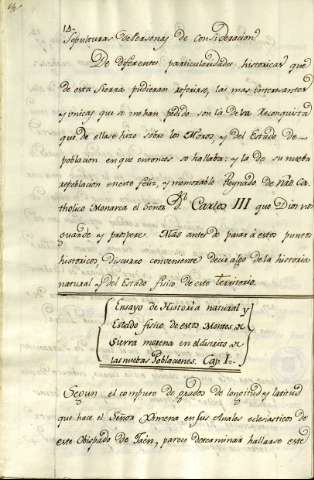 14
Sepulturas de Personas de Consideracion
De diferentes particularidades historicas que
de esta Sierra pudieran referirse, las mas interesantes
y unicas que se me han pedido son la de la Reconquista
que de ella se hizo sobre los Moros, y del Estado de
poblacion en que entonces se hallaba: y la de su nueba
repoblacion en este feliz, y memorable Reynado de nro Ca-
tholico Monarca el Señor Dn. Carlos III que Dios nos
guarde y prospere. Mas antes de pasar à estos puntos
historicos discurro conveniente decir algo de la historia
natural y del Estado fisico de este Territorio.
Ensayo de Historia natural y
Estado fisico de estos Montes de
Sierra morena en el distrito de
las nuebas Poblaciones. Cap. I.
Segun el computo de grados de longitud y latitud
que hace el Señor Ximena en sus Anales eclesiasticos de
este Obispado de Jaén, parece determinar hallarse este